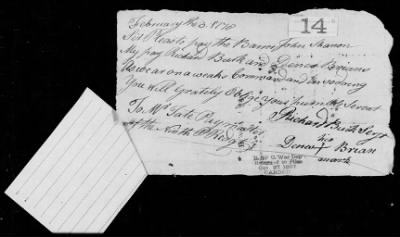 February the 3. 1778
14
Sir Please pay the Barer John Shanon
My pay Richard Bush and Denes Brians
As we are on a weaks Command and in so doing
You will Grately Oblige your humble Servant
To Mr Tate Paymaster
of the Ninth P Regt
Richard Bush Serjt
his
Denes Brian
mark